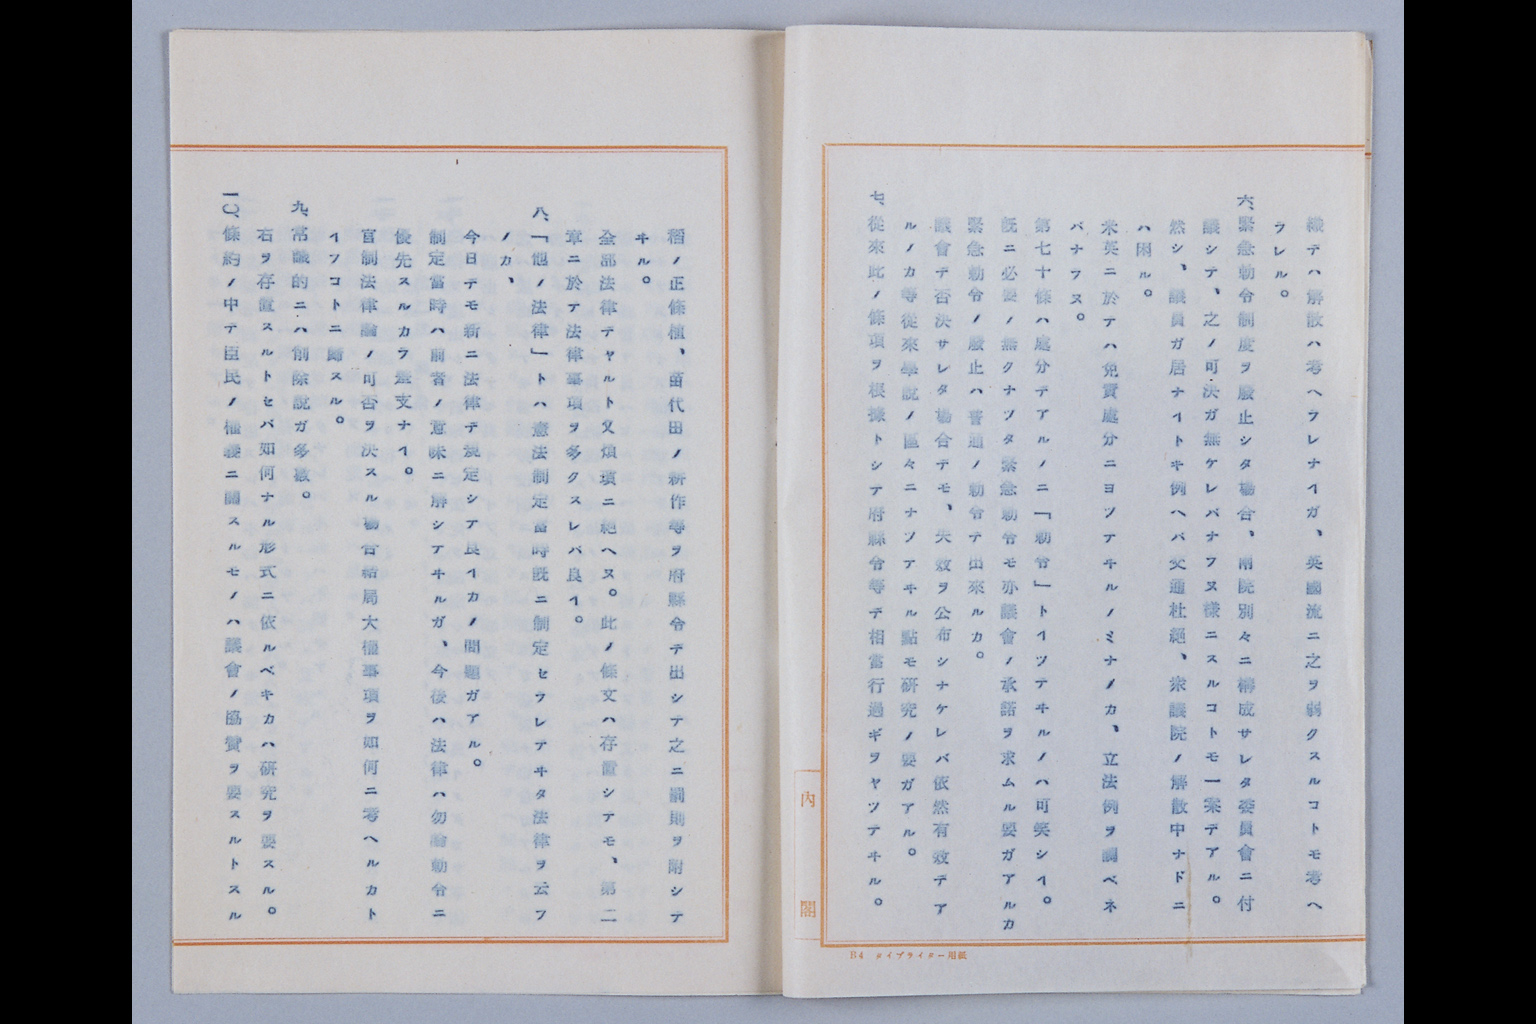 機デハ解散ハ考ヘラレナイガ、英國流ニ之ヲ弱クスルコトモ考ヘ
ラレル。
六、緊急勅令制度ヲ廢止シタ場合、兩院別々ニ構成サレタ委員會ニ付
議シテ、之ノ可決ガ無ケレバナラヌ樣ニスルコトモ一案デアル。
然シ、議員ガ居ナイトキ例ヘバ交通杜絶、衆議院ノ解散中ナドニ
ハ困ル。
米英ニ於テハ免責處分ニヨツテヰルノミナノカ、立法例ヲ調ベネ
バナラヌ。
第七十條ハ處分デアルノニ「勅令」トイツテヰルノハ可笑シイ。
既ニ必要ノ無クナツタ緊急勅令モ亦議會ノ承諾ヲ求ムル要ガアルカ
緊急勅令ノ廢止ハ普通ノ勅令デ出來ルカ。
議會デ否決サレタ場合デモ、失效ヲ公布シナケレバ依然有效デア
ルノカ等從來學説ノ區々ニナツテヰル點モ研究ノ要ガアル。
七、從來此ノ條項ヲ根據トシテ府縣令等デ相當行過ギヲヤツテヰル。
內閣
B4 タイプライター用紙
稻ノ正條植、苗代田ノ新作等ヲ府縣令デ出シテ之ニ罰則ヲ附シテ
ヰル。
全部法律デヤルト又煩瑣ニ絶ヘヌ。此ノ條文ハ存置シテモ、第二
章ニ於テ法律事項ヲ多クスレバ良イ。
八、「他ノ法律」トハ憲法制定當時既ニ制定セラレテヰタ法律ヲ云フ
ノカ、
今日デモ新ニ法律デ規定シテ良イカノ問題ガアル。
制定當時ハ前者ノ意味ニ解シテヰルガ、今後ハ法律ハ勿論勅令ニ
優先スルカラ差支ナイ。
官制法律論ノ可否ヲ決スル場合結局大權事項ヲ如何ニ考ヘルカト
イフコトニ歸スル。
九、常議的ニハ削除説ガ多數。
右ヲ存置スルトセバ如何ナル形式ニ依ルベキカハ研究ヲ要スル。
一〇、條約ノ中デ臣民ノ權義ニ關スルモノハ議會ノ協贊ヲ要スルトスル